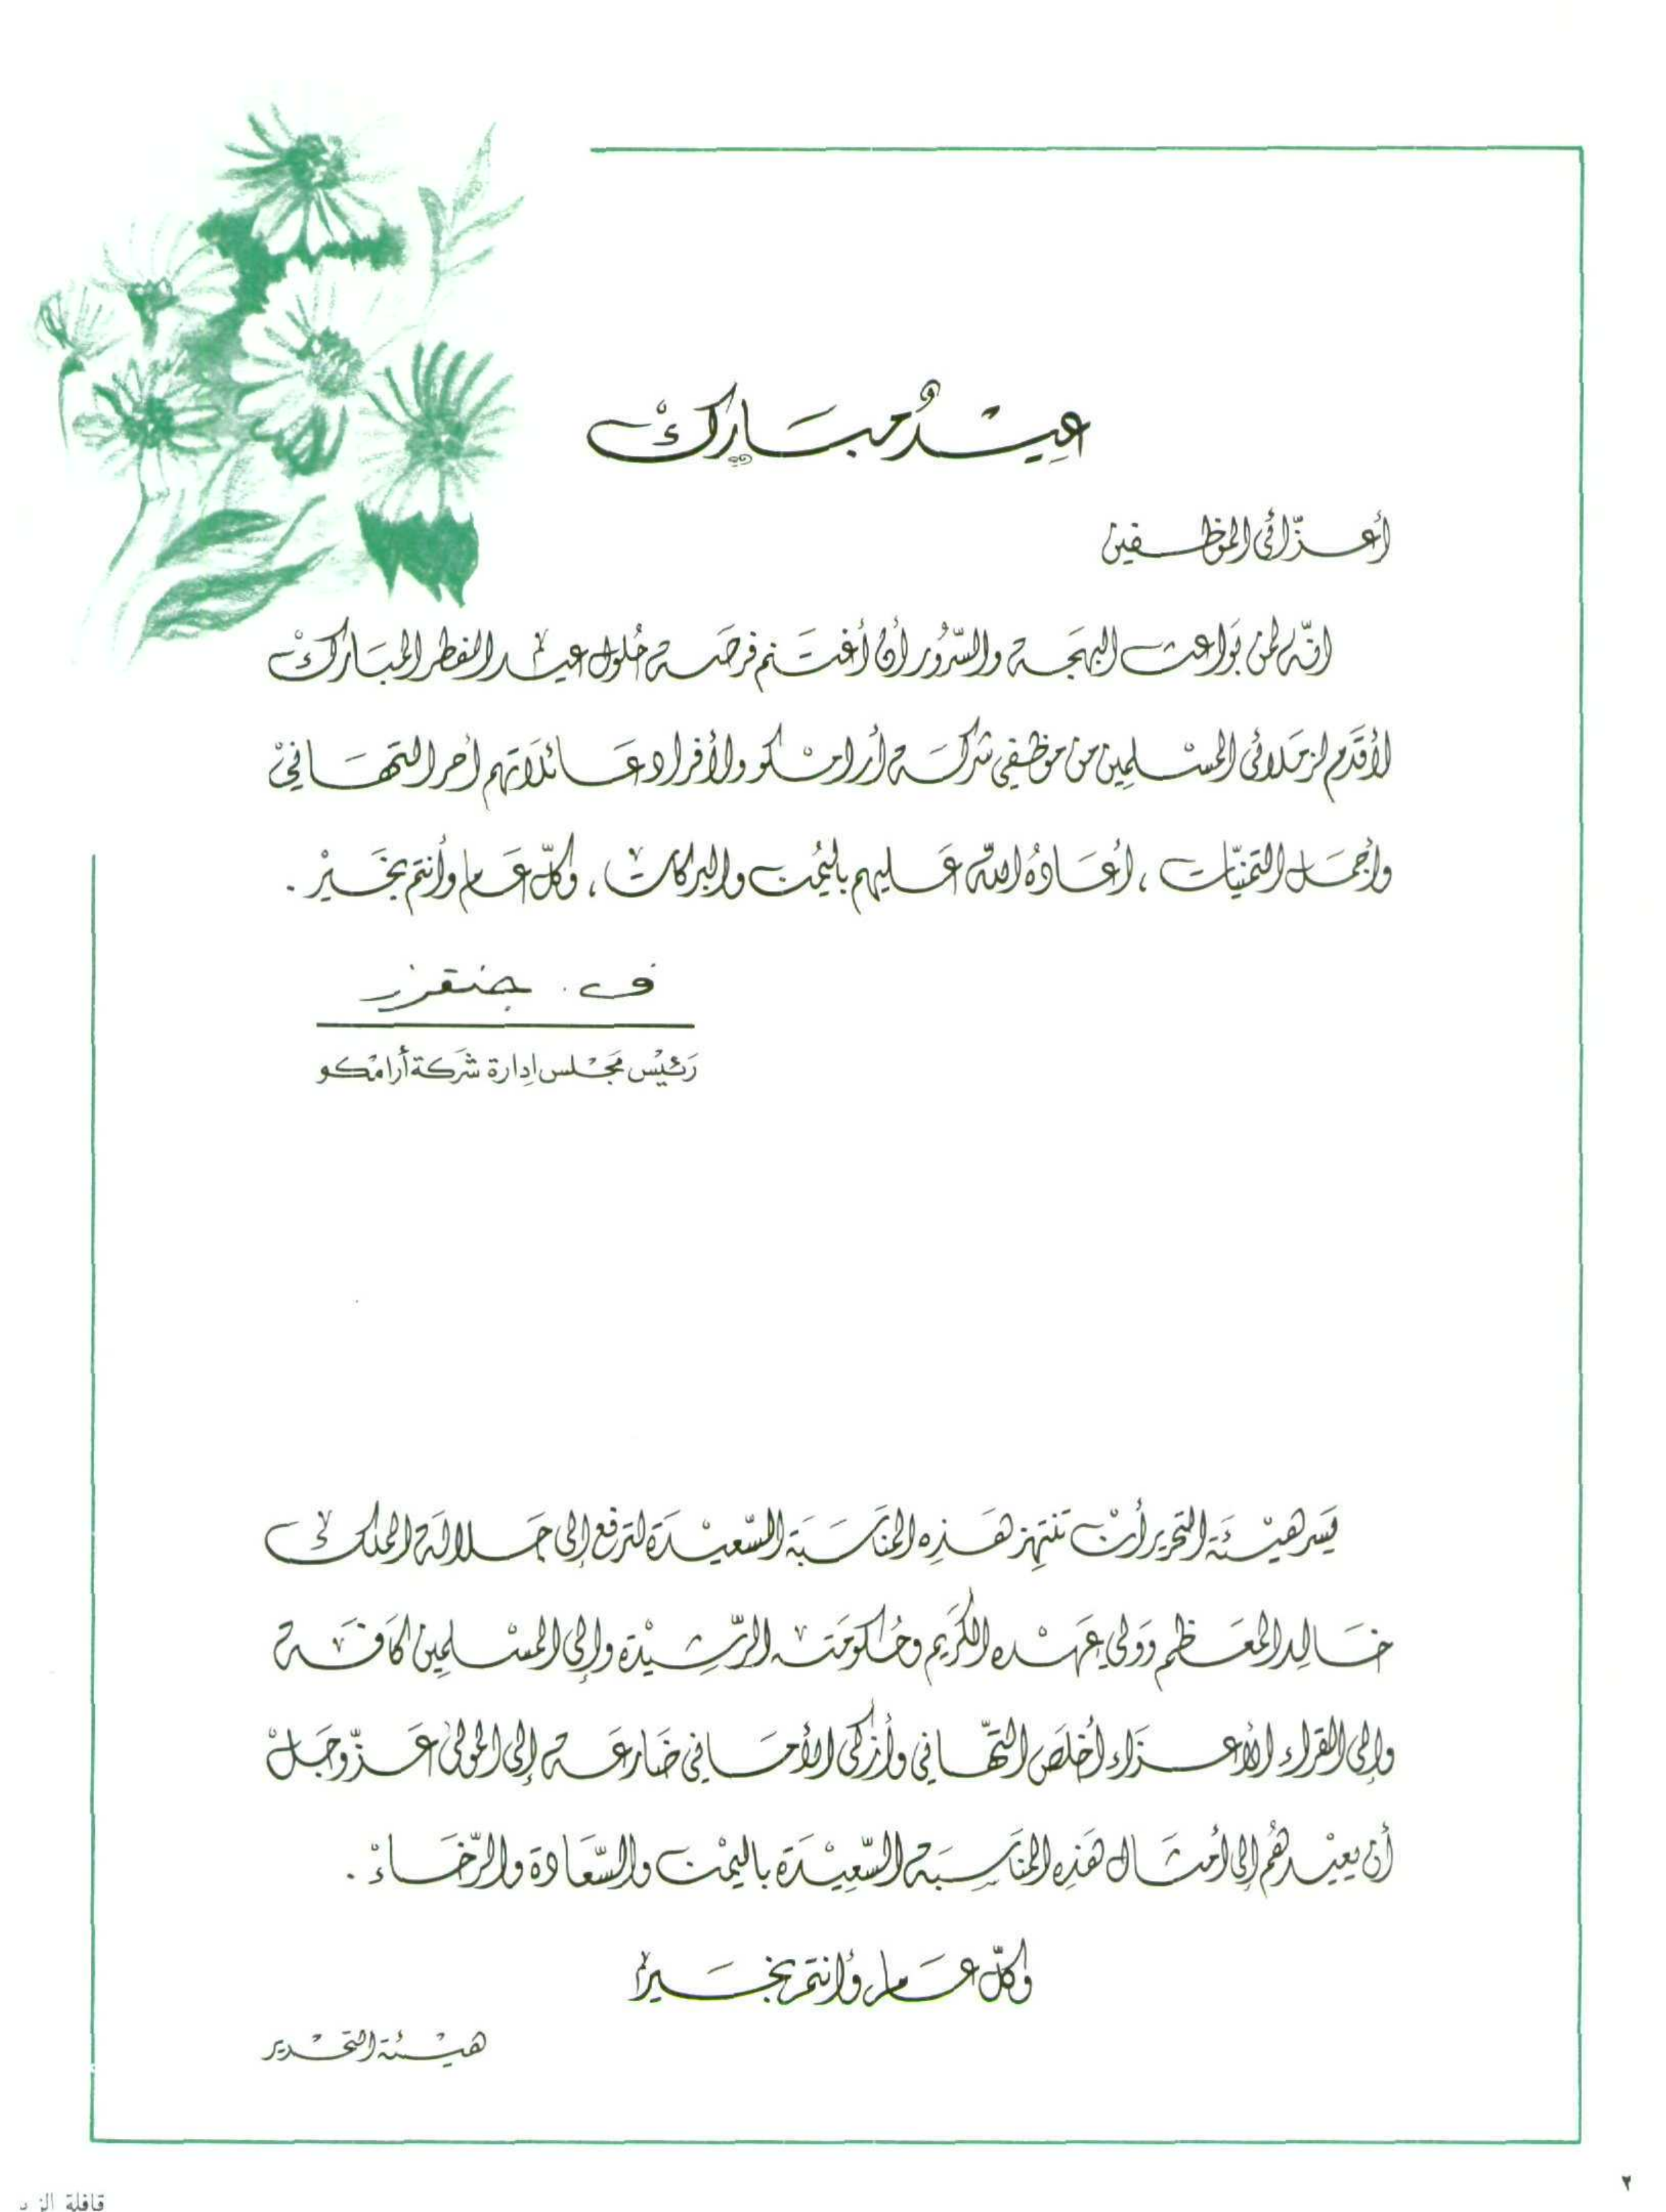 عيد مبارك
أعزائي الموظفين
انه لمن بواعث البهجة والسرور أن أغتنم فرصة حلول عيد الفطر المبارك
لأقدم لزملائي المسلمين من موظفي شركة أرامكو ولأفراد عائلاتهم أحر التهاني
وأجمل التمنيات ، أعاده الله عليهم باليمن والبركات ، وكل عام وأنتم بخير .
ف . جنقرز
رئيس مجلس إدارة شركة أرامكو
يسر هيئة التحرير أن تنتهز هذه المناسبة السعيدة لترفع إلى جلالة الملك
خالد المعظم وولي عهده الكريم وحكومته الرشيدة وإلى المسلمين كافة
وإلى القراء الأعزاء أخلص التهاني وأزكى الأماني ضارعة إلى المولى عز وجل
أن يعيدهم إلى أمثال هذه المناسبة السعيدة باليمن والسعادة والرخاء .
وكل عام وأنتم بخير
هيئة التحرير
٢
قافلة الز